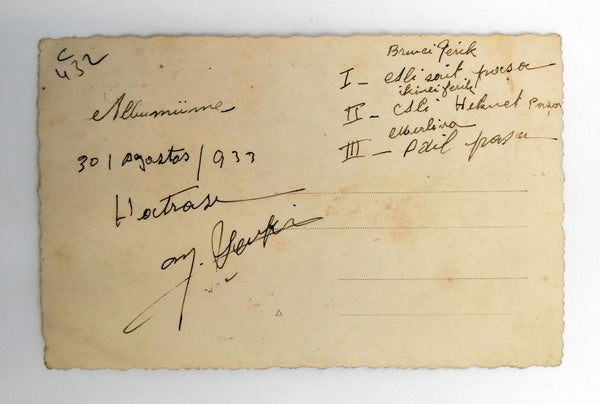 C
432
Albumüme
30 / agostos / 933
Hatrası
M. Şevki
Birinci ferik
I - Ali sait paşa
ikinci ferik
II - Ali Hikmet Paşa
Mirliva
III - paşa